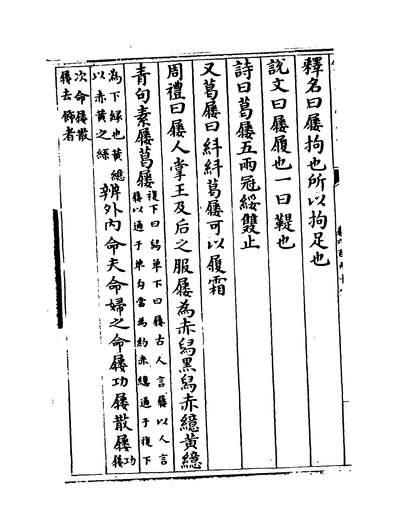 釋名曰屨拘也所以拘足也
說文曰屨履也一曰鞮也
詩曰葛屨五兩冠緌雙止
又葛屨曰糾糾葛屨可以履霜
周禮曰屨人掌王及后之服屨為赤舄黑舄赤繶黃繶
青句素屨葛屨複下曰舄单下曰屨古人言屨以人言
屨以通于单句當為絇赤繶通于複下
為下緣也黃繶
以赤黃之緣
辨外內命夫命婦之命屨功屨散屨功
屨
次命屨散
屨去飾者